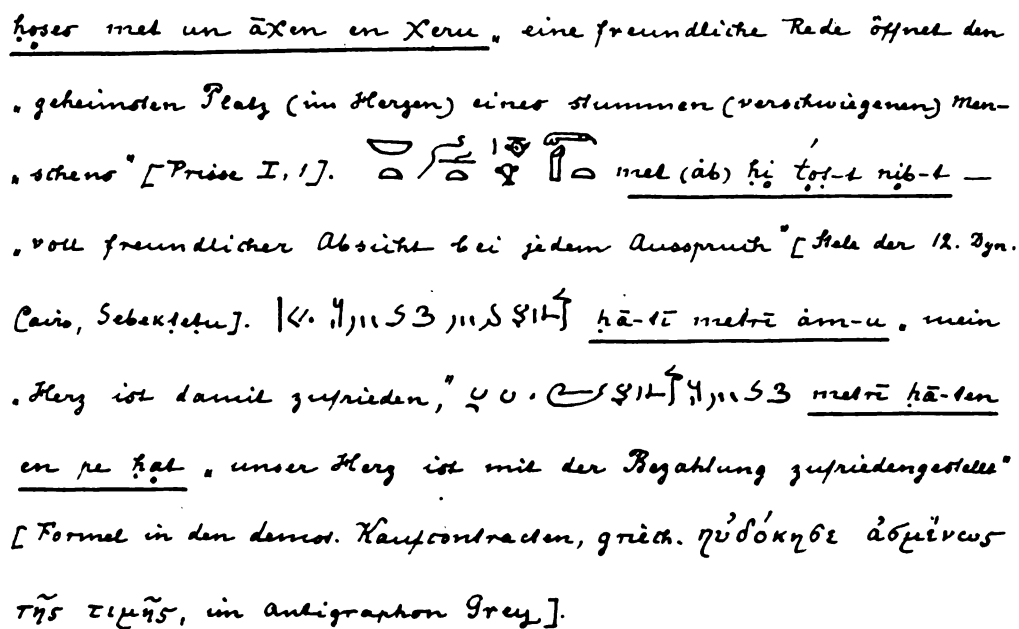 ḥọses met un āχen en χeru „ eine freundliche Rede öffnet den
„ geheimsten Platz (im Herzen) eines stummen (verschwiegenen) Men-
„ schens" [Prisse I, 1]. met (àb) ḥị ṭọṣ-t nịb-t —
„ voll freundlicher Absicht bei jedem Ausspruch" [Stele der 12. Dyn.
Cairo, Sebekḥeṭu]. ḥā-tī metrī àm-u „ mein
„ Herz ist damit zufrieden," metrī ḥā-ten
en pe ḥạt „ unser Herz ist mit der Bezahlung zufriedengestellt"
[Formel in den demot. Kaufcontracten, griech. ηὐδόκησε ἀσμένως
τῆς τιμῆς, im Antigraphon Grey].